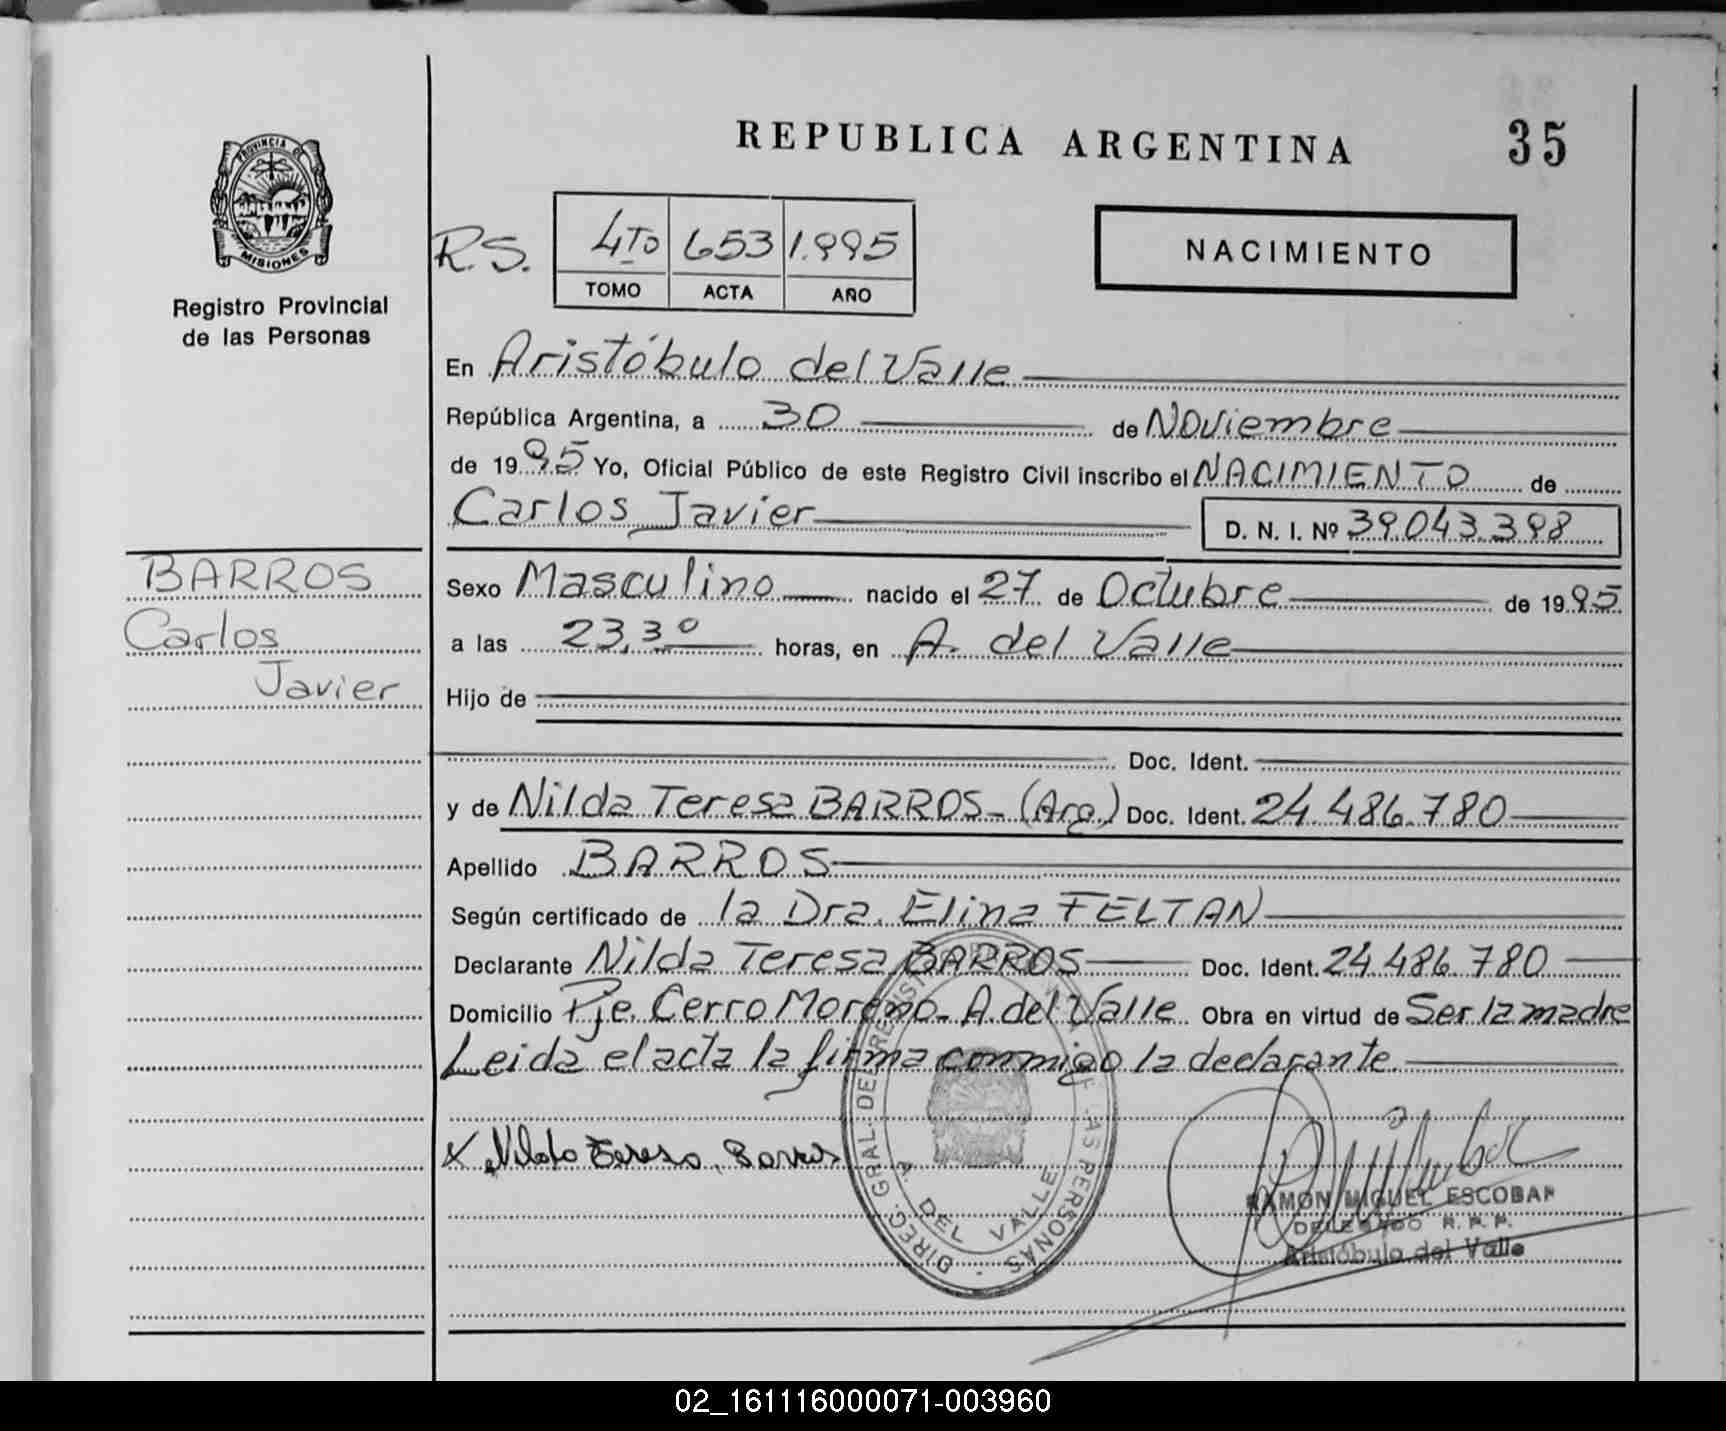 REPUBLICA ARGENTINA
35
PROVINCIA DE
MISIONES
Registro Provincial
de las Personas
R.S.
4TO 653 1.995
TOMO ACTA AÑO
NACIMIENTO
En Aristóbulo del Valle
República Argentina, a 30 de Noviembre
de 1995 Yo, Oficial Público de este Registro Civil inscribo el NACIMIENTO de
Carlos Javier D. N. I. Nº 39.043.398
BARROS
Carlos
Javier
Sexo Masculino nacido el 27 de Octubre de 1995
a las 23,30 horas, en A. del Valle
Hijo de
Doc. Ident.
y de Nilda Teresa BARROS - (Arg.) Doc. Ident. 24.486.780
Apellido BARROS
Según certificado de la Dra. Elina FELTAN
Declarante Nilda Teresa BARROS Doc. Ident. 24.486.780
Domicilio Pje. Cerro Moreno - A. del Valle Obra en virtud de Ser la madre
Leida el acta la firma conmigo la declarante.
X Nilda Teresa, Barros
DIREC. GRAL. DE REGISTRO DE LAS PERSONAS
A. DEL VALLE
RAMON MIGUEL ESCOBAR
DELEGADO R.P.P.
Aristóbulo del Valle
02_161116000071-003960